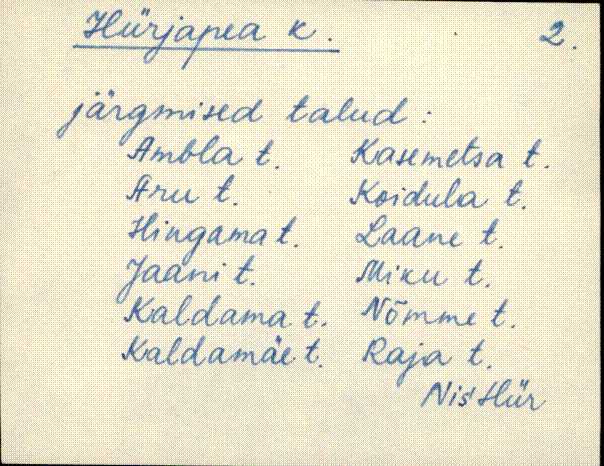 Hürjapea k. 2.
järgmised talud:
Ambla t. Kasemetsa t.
Aru t. Koidula t.
Hingama t. Laane t.
Jaani t. Miku t.
Kaldama t. Nõmme t.
Kaldamäe t. Raja t.
Nis' Hür